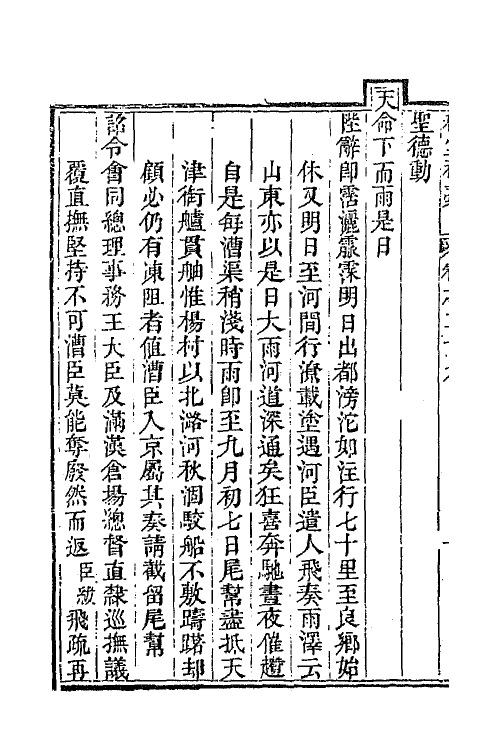 聖德動
天命下而雨是日
陛辭即霑灑霢霂明日出都滂沱如注行七十里至良鄉始
休又明日至河間行潦載塗遇河臣遣人飛奏雨澤云
山東亦以是日大雨河道深通矣狂喜奔馳晝夜催趲
自是每漕渠稍淺時雨即至九月初七日尾幫盡抵天
津銜艫貫舳惟楊村以北潞河秋涸駮船不敷躊躇却
顧必仍有凍阻者值漕臣入京屬其奏請截留尾幫
詔令會同總理事務王大臣及滿漢倉場總督直隸巡撫議
覆直撫堅持不可漕臣莫能奪廢然而返臣

飛疏再